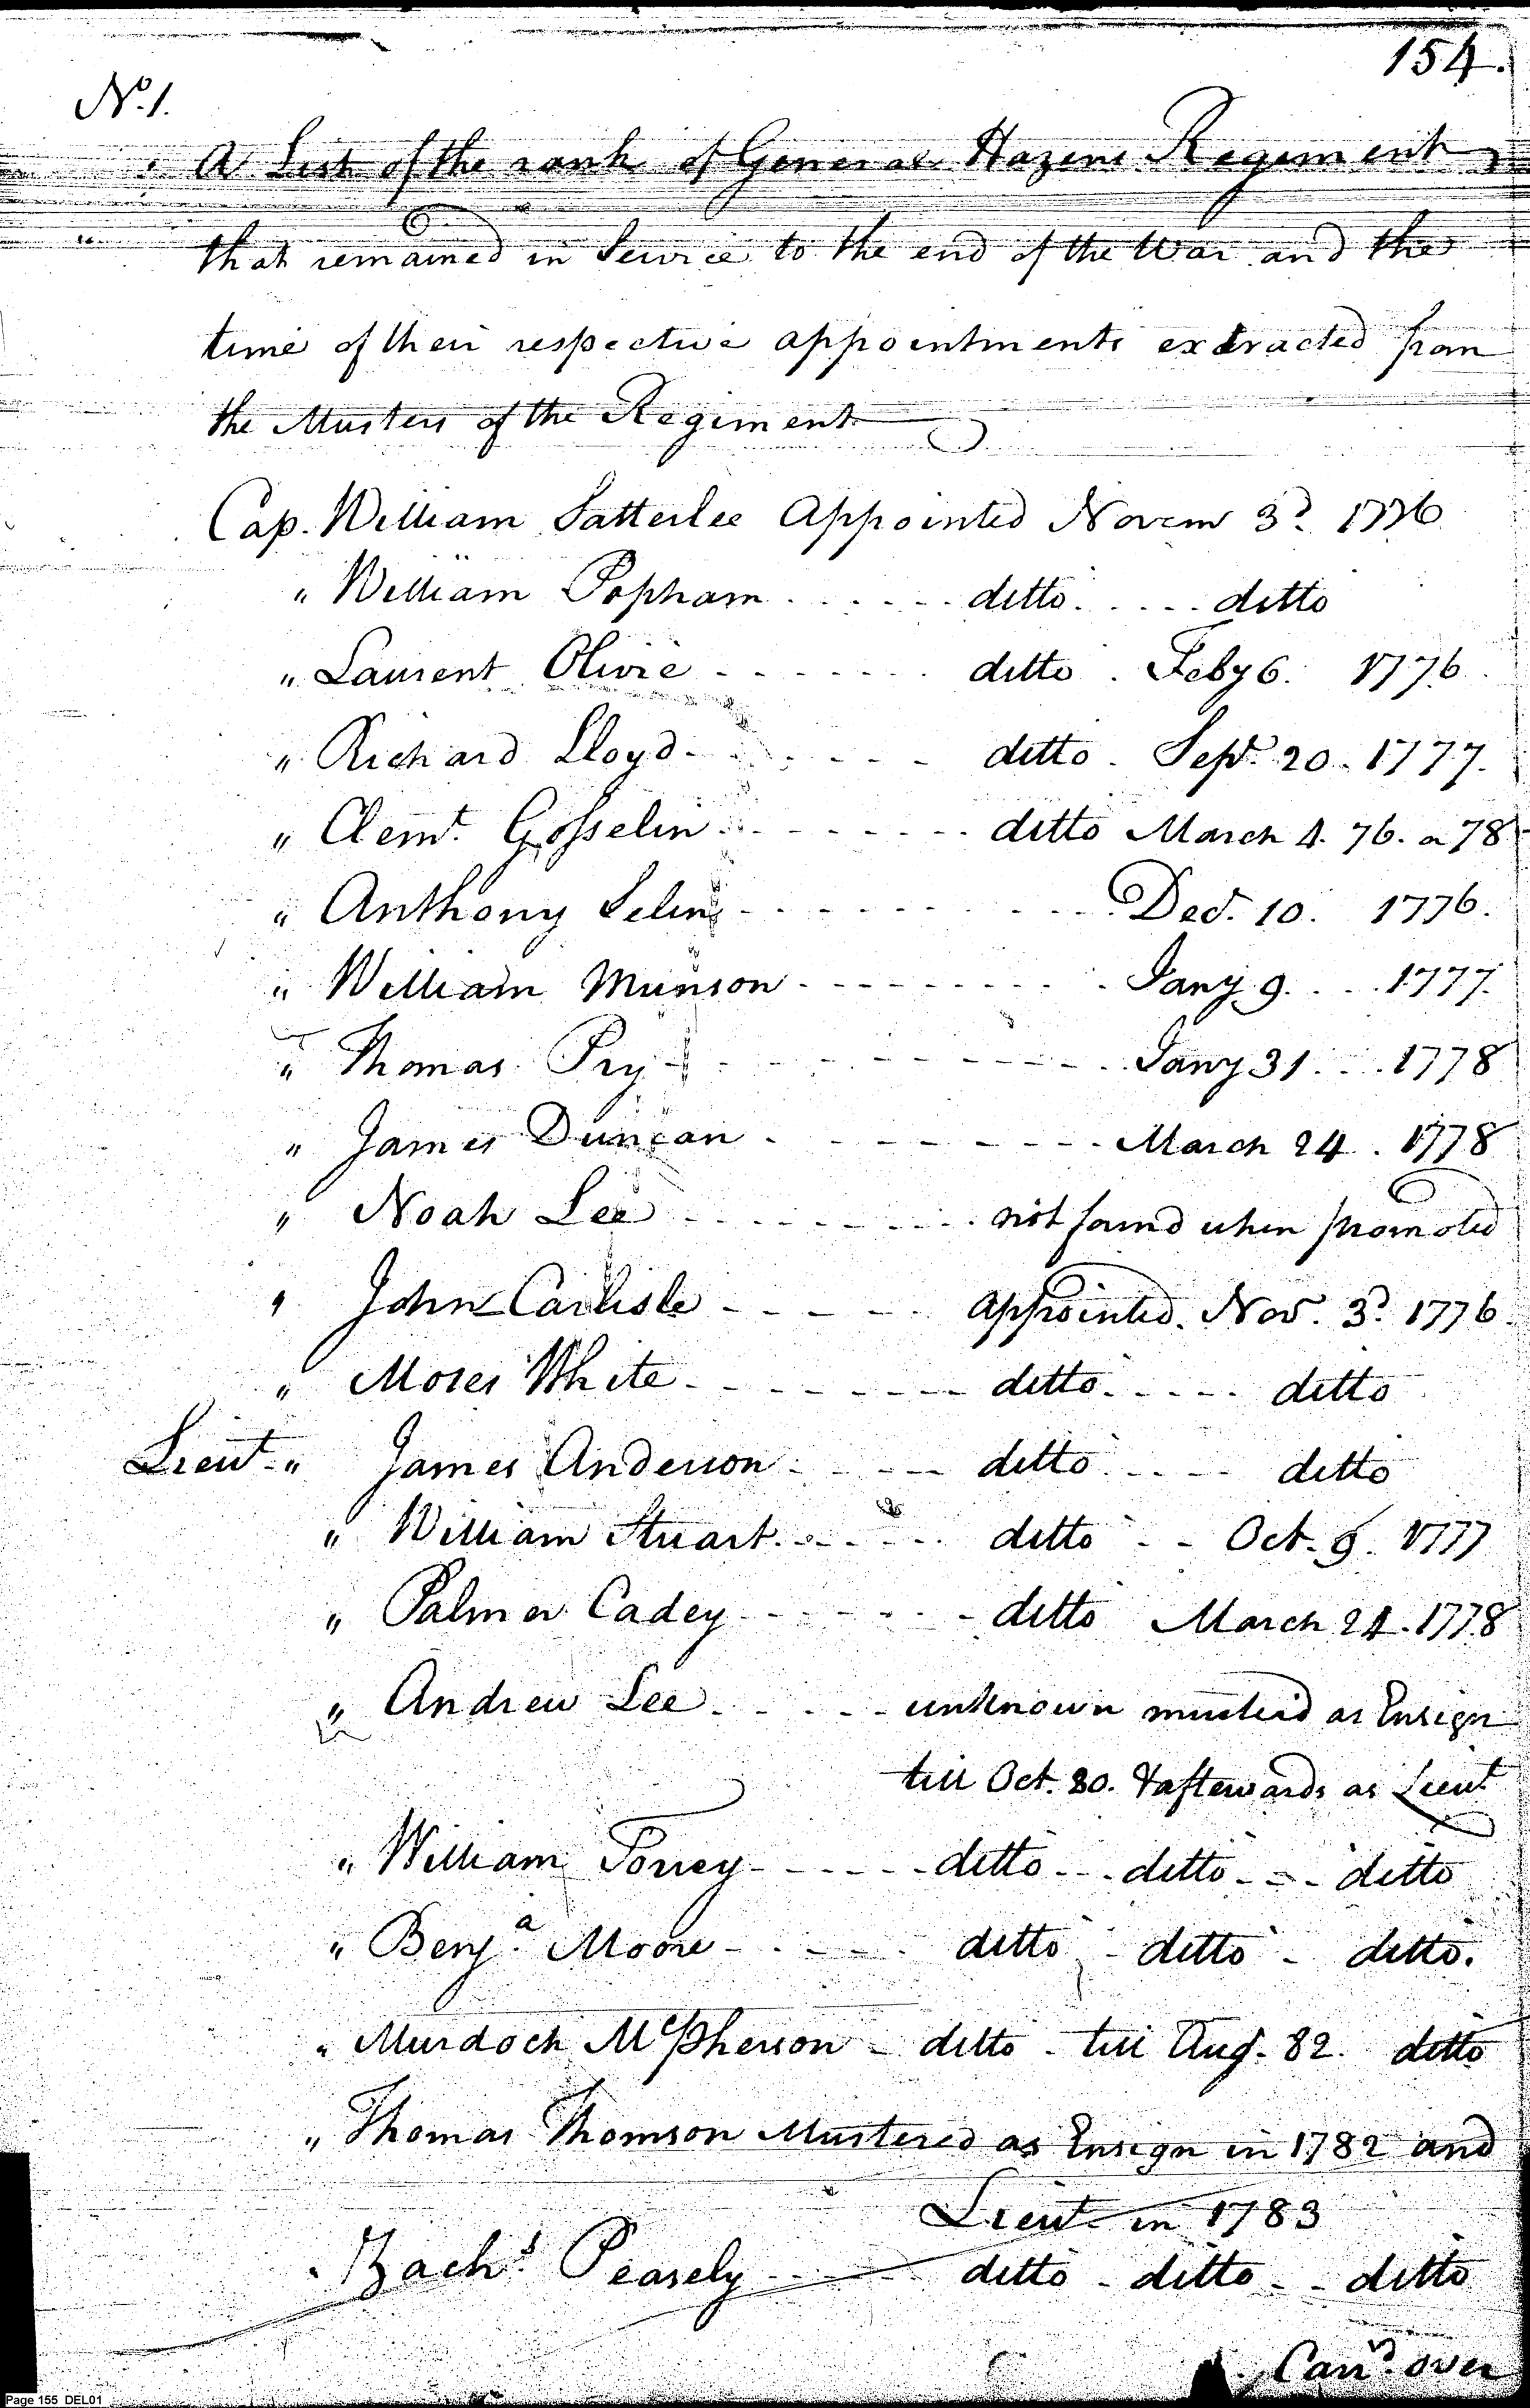 154.
No. 1.
A List of the rank of General Hazens Regiment
that remained in Service to the end of the War and the
time of their respective appointments extracted from
the Musters of the Regiment
Cap. William Satterlee Appointed Novem 3d. 1776
" William Popham ...... ditto ..... ditto
" Laurent Olivie ....... ditto . Feby 6. 1776.
" Richard Lloyd ...... ditto . Sept. 20. 1777.
" Clemt. Gosselin ....... ditto March 4. 76. or 78
" Anthony Selin ......... Decr. 10. 1776.
" William Munson ......... Jany 9. ... 1777.
" Thomas Pry ......... Jany 31 ... 1778
" James Duncan ......... March 24. 1778
" Noah Lee ......... not found when promoted
" John Carlisle ..... appointed. Nov. 3d. 1776.
" Moses White ........ ditto ..... ditto
Lieut. " James Anderson ..... ditto ..... ditto
" William Stuart ...... ditto .. Oct. 9. 1777
" Palmer Cadey ....... ditto March 24. 1778
" Andrew Lee ..... unknown musterd as Ensign
till Oct. 80. & afterwards as Lieut
" William Torrey ..... ditto ... ditto ... ditto
" Benja. Moore ..... ditto - ditto - ditto.
" Murdoch McPherson - ditto - till Augt. 82. ditto
" Thomas Thomson Mustered as Ensign in 1782 and
Lieut in 1783
" Zachs. Peasely ..... ditto - ditto - - ditto
Carrd. over
Page 155 DEL01